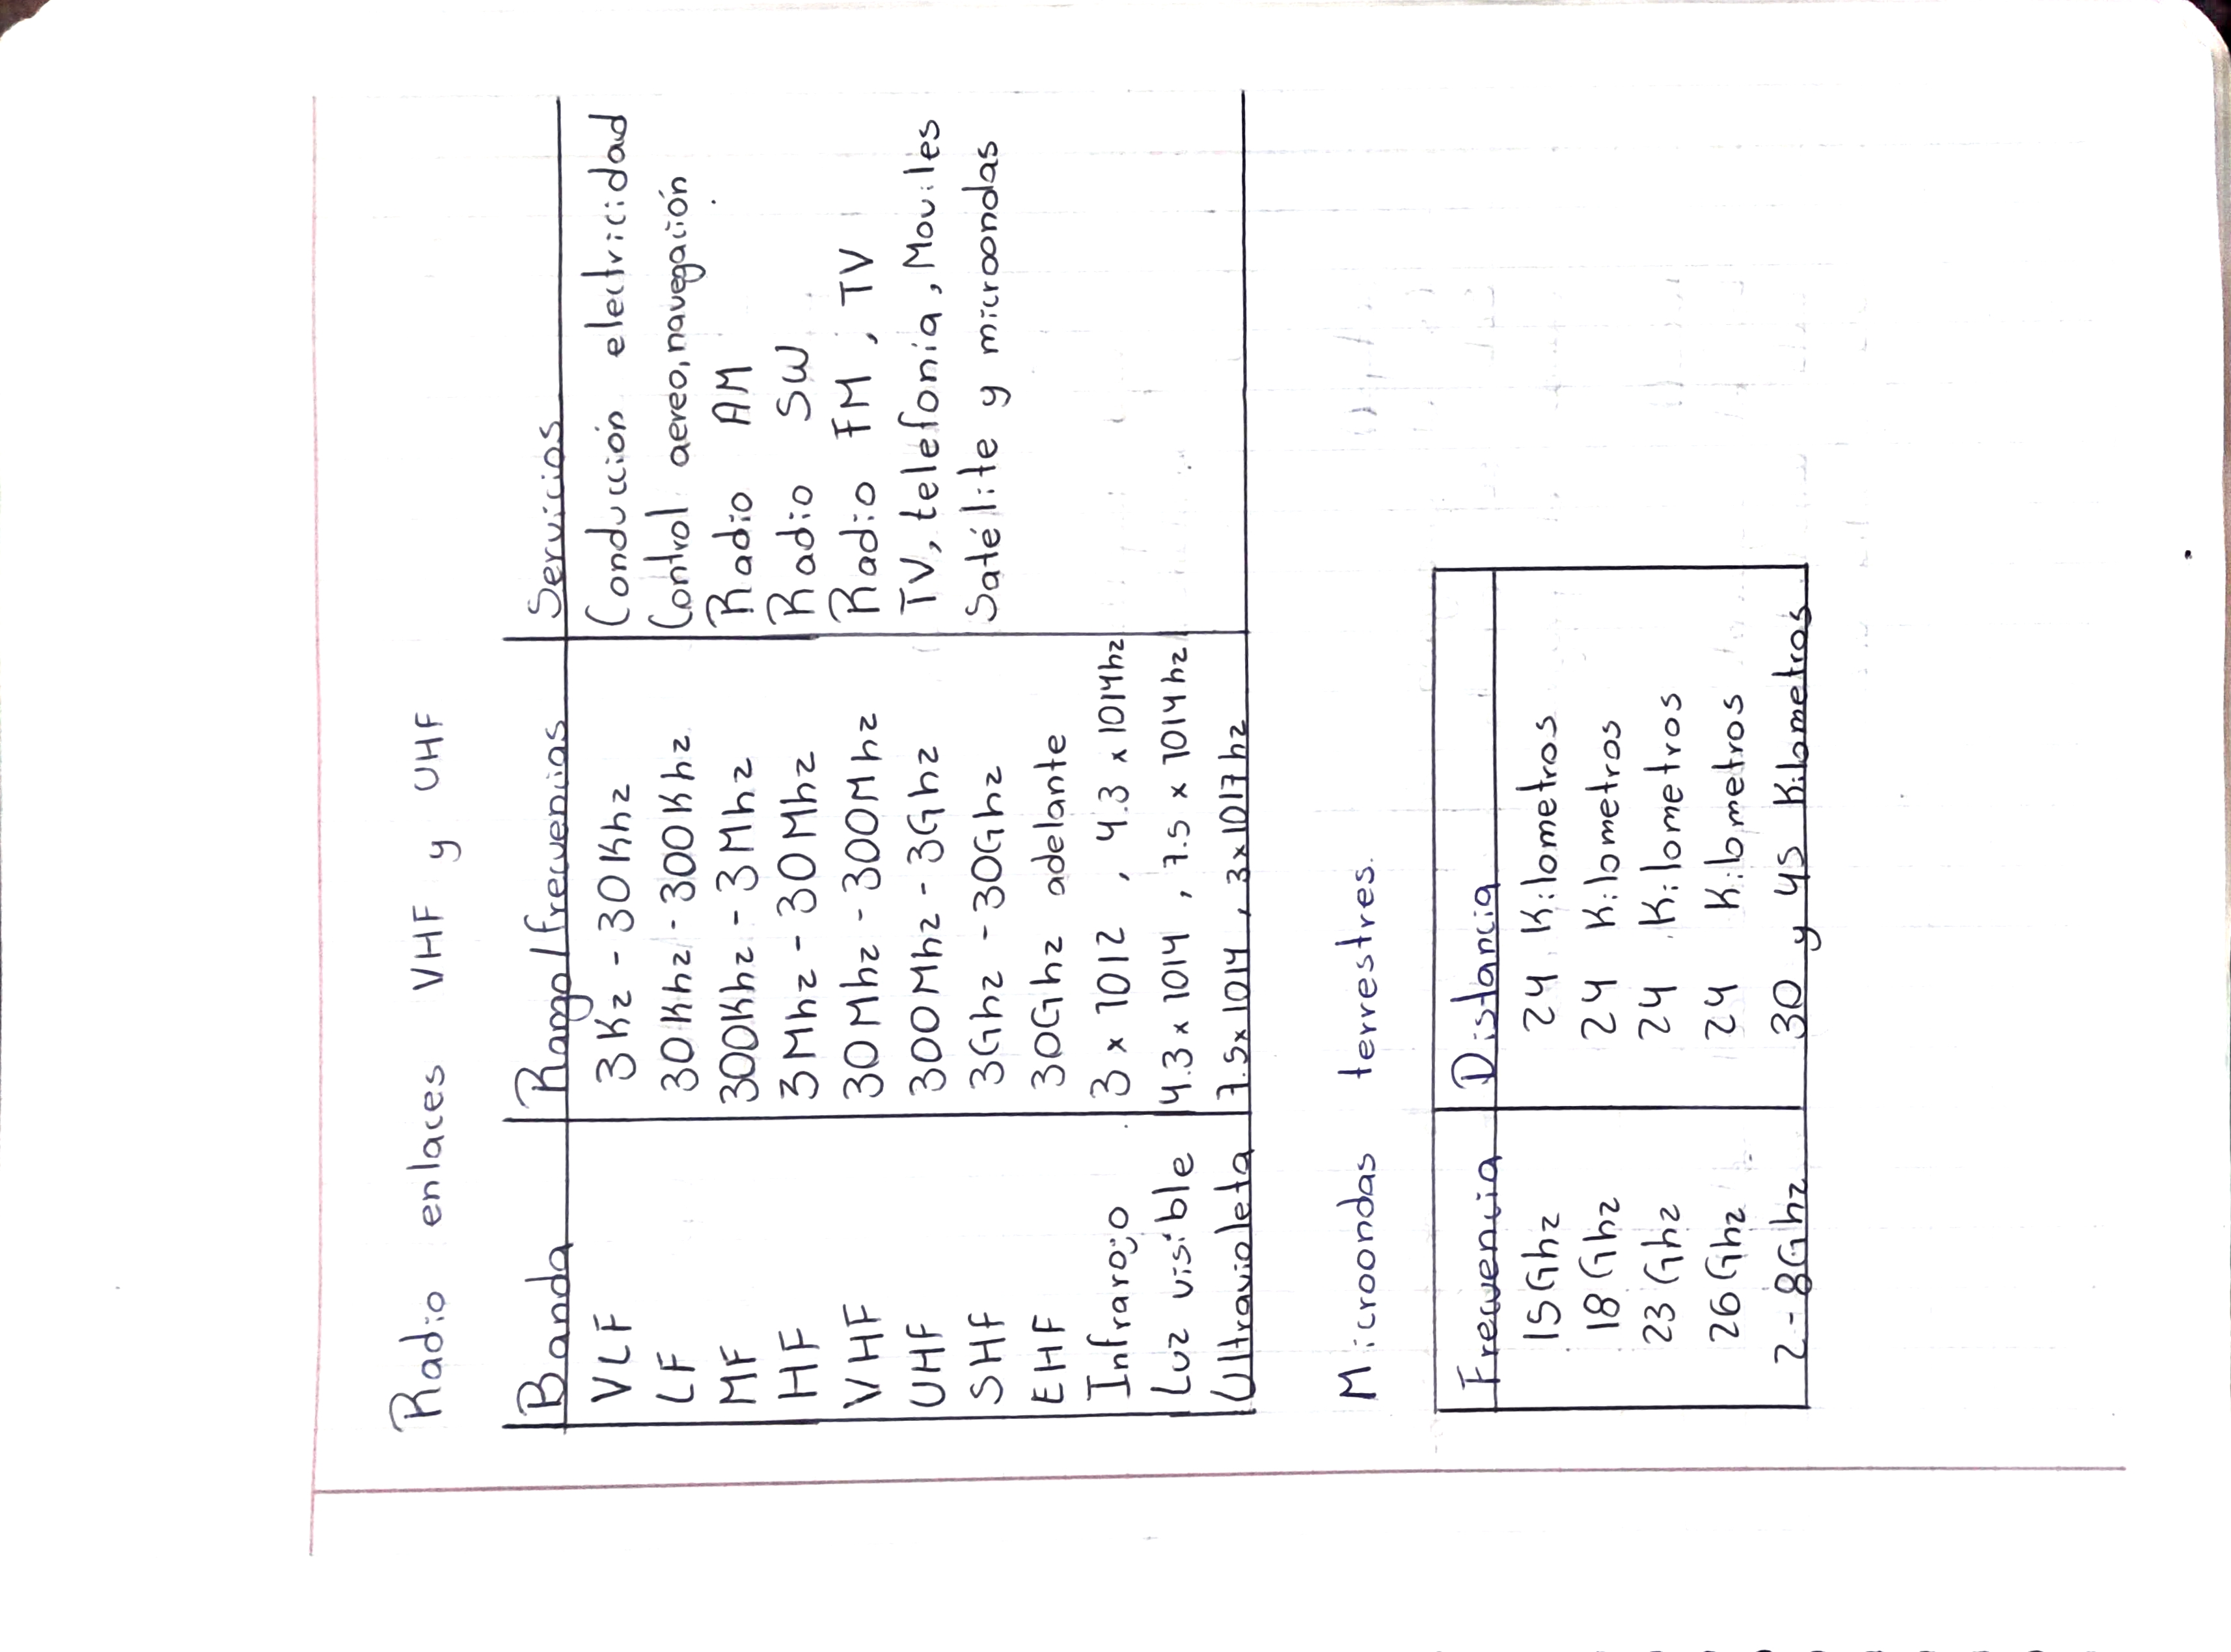 Radio enlaces VHF y UHF
Banda Rango/frecuencias Servicios
VLF 3Kz - 30Khz Conducción electricidad
LF 30Khz - 300Khz Control aereo, navegación
MF 300Khz - 3Mhz Radio AM
HF 3Mhz - 30Mhz Radio SW
VHF 30Mhz - 300Mhz Radio FM, TV
UHF 300Mhz - 3Ghz TV, telefonia, Moviles
SHF 3Ghz - 30Ghz Satélite y microondas
EHF 30Ghz adelante
Infrarojo 3 x 1012 , 4.3 x 1014hz
Luz visible 4.3 x 1014 , 7.5 x 1014hz
Ultravioleta 7.5x1014 , 3x1017hz
Microondas terrestres.
Frecuencia Distancia
15Ghz 24 Kilometros
18Ghz 24 Kilometros
23Ghz 24 Kilometros
26Ghz 24 Kilometros
2-8Ghz 30 y 45 Kilometros